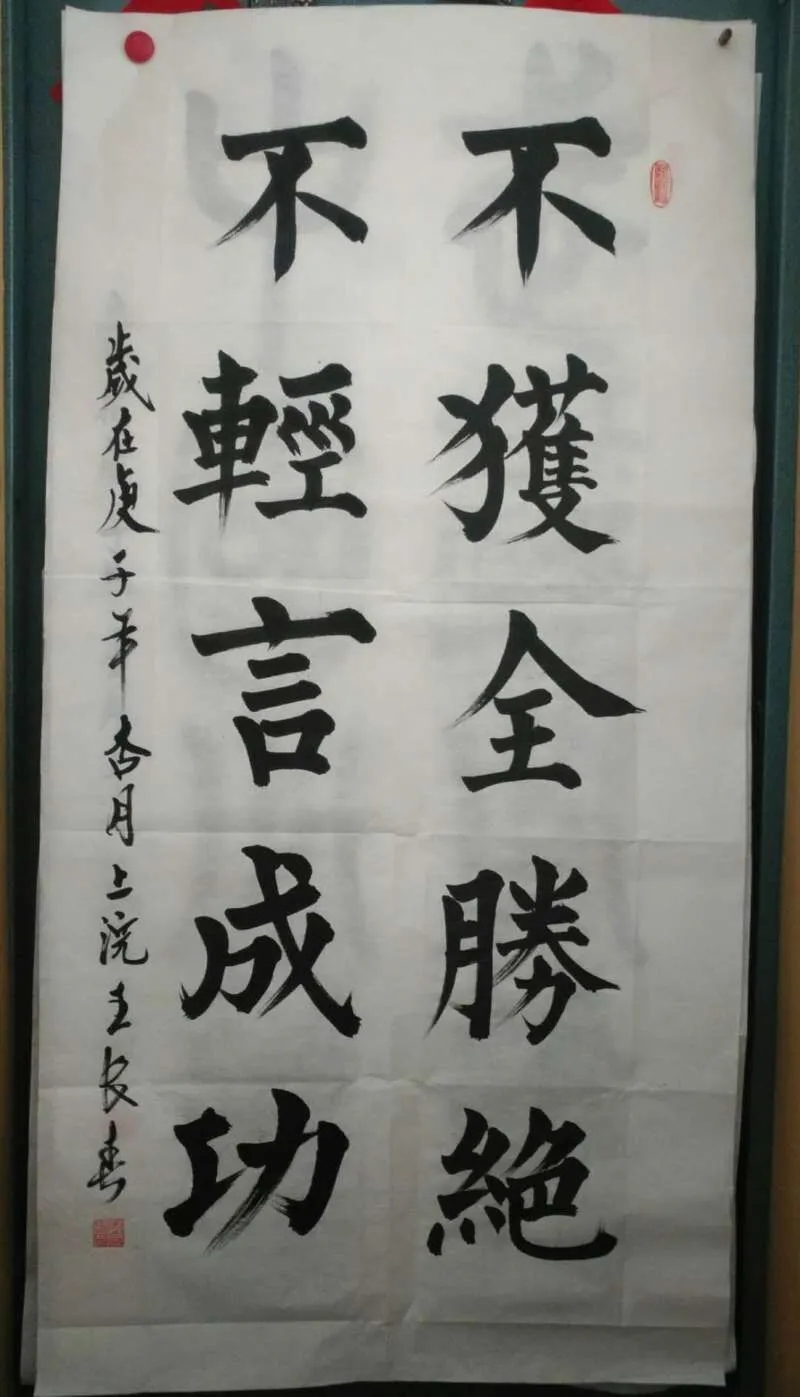 不獲全勝絕
不輕言成功
歲在庚子年杏月上浣王長春